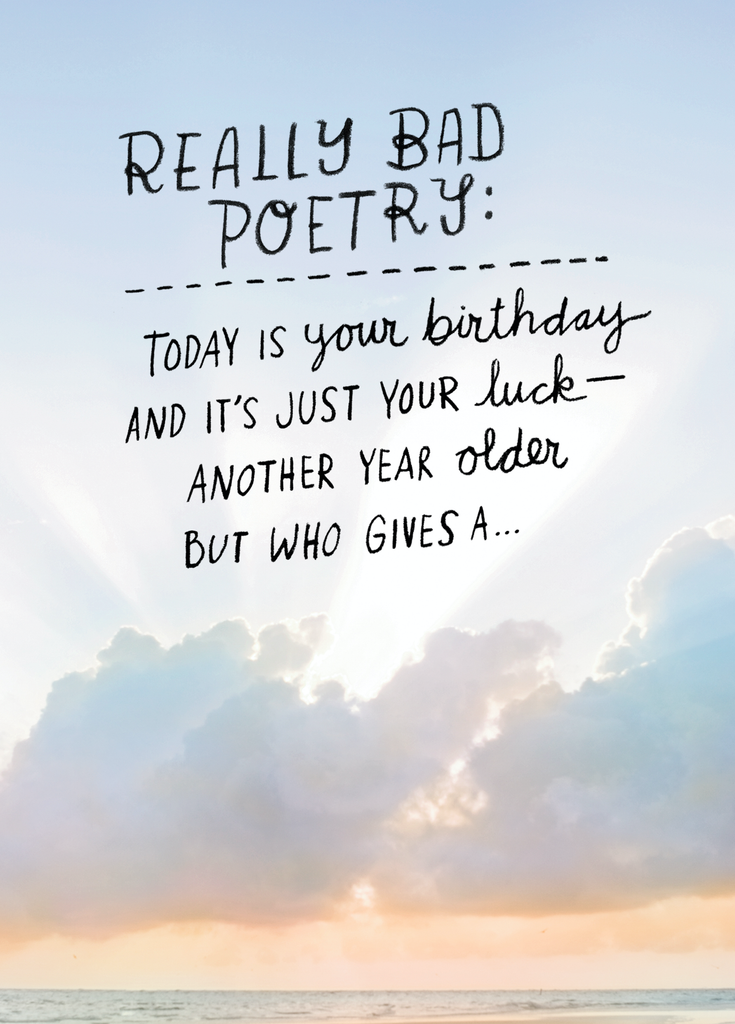 REALLY BAD
POETRY:
TODAY IS your birthday
AND IT'S JUST YOUR luck—
ANOTHER YEAR older
BUT WHO GIVES A...